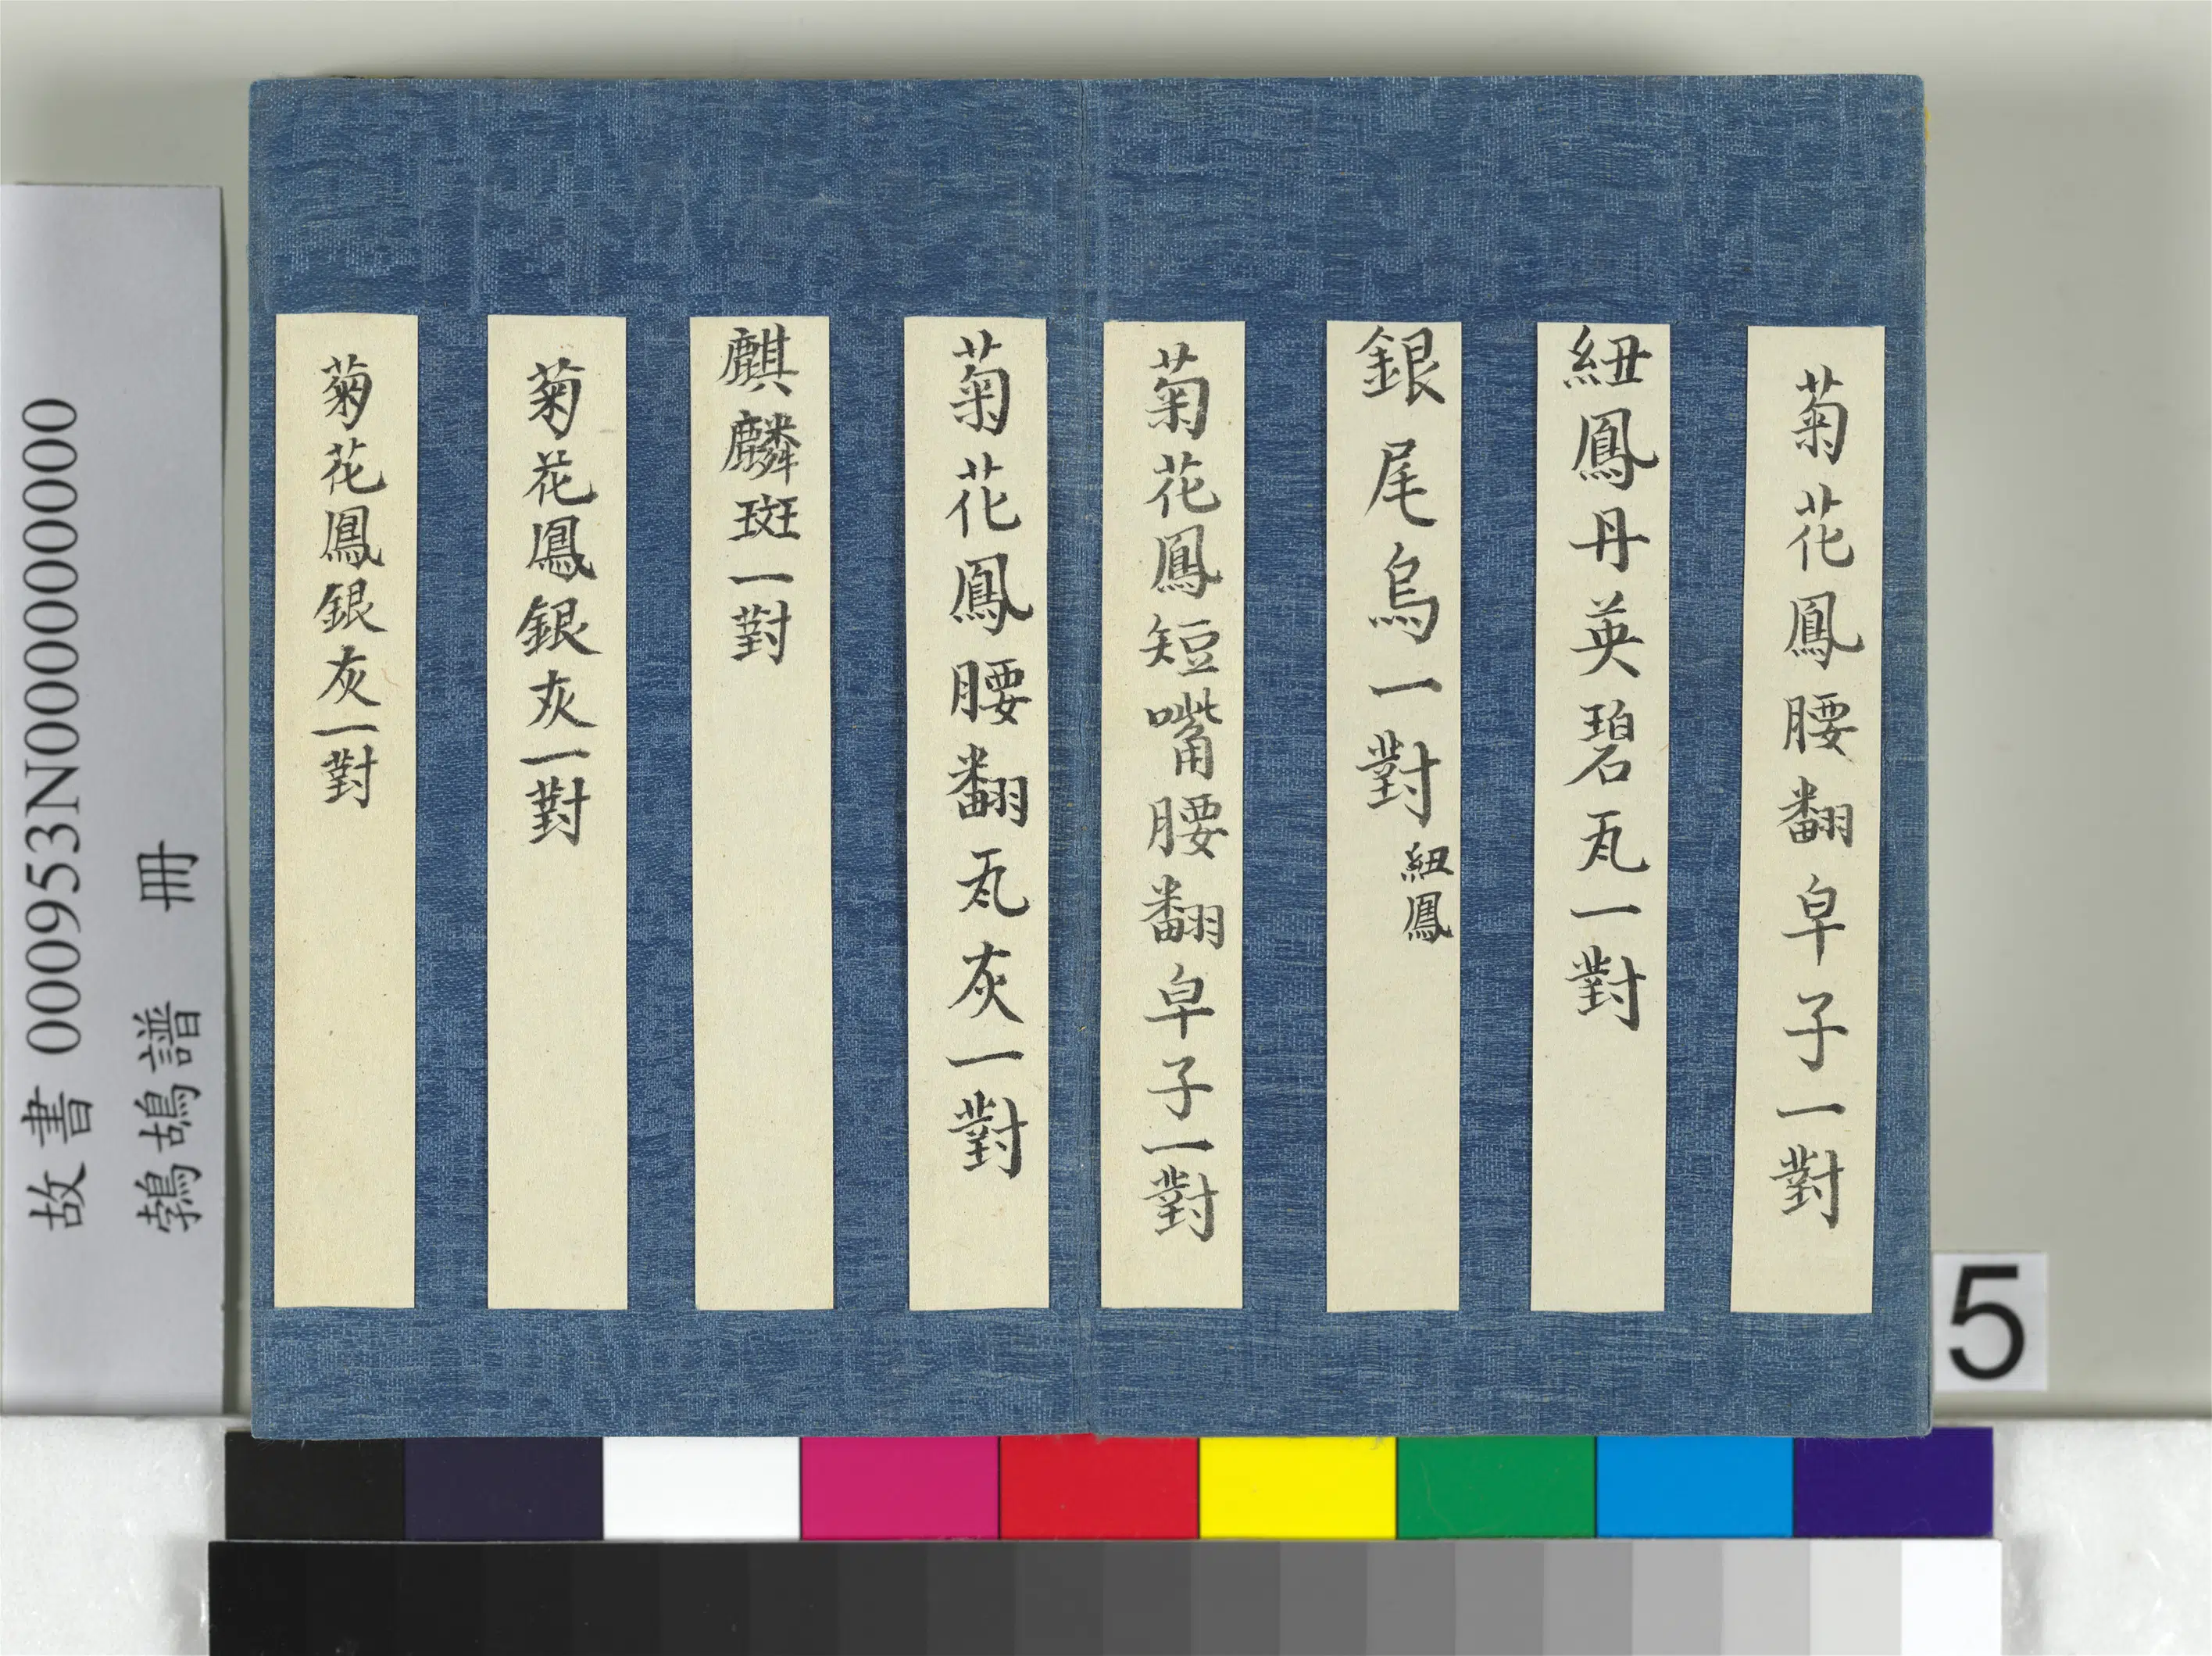 菊花鳳腰翻皁子一對
紐鳳丹英碧瓦一對
銀尾烏一對 紐鳳
菊花鳳短嘴腰翻皁子一對
菊花鳳腰翻瓦灰一對
麒麟斑一對
菊花鳳銀灰一對
菊花鳳銀灰一對
故書 000953N000000000
鵓鴣譜 冊
5